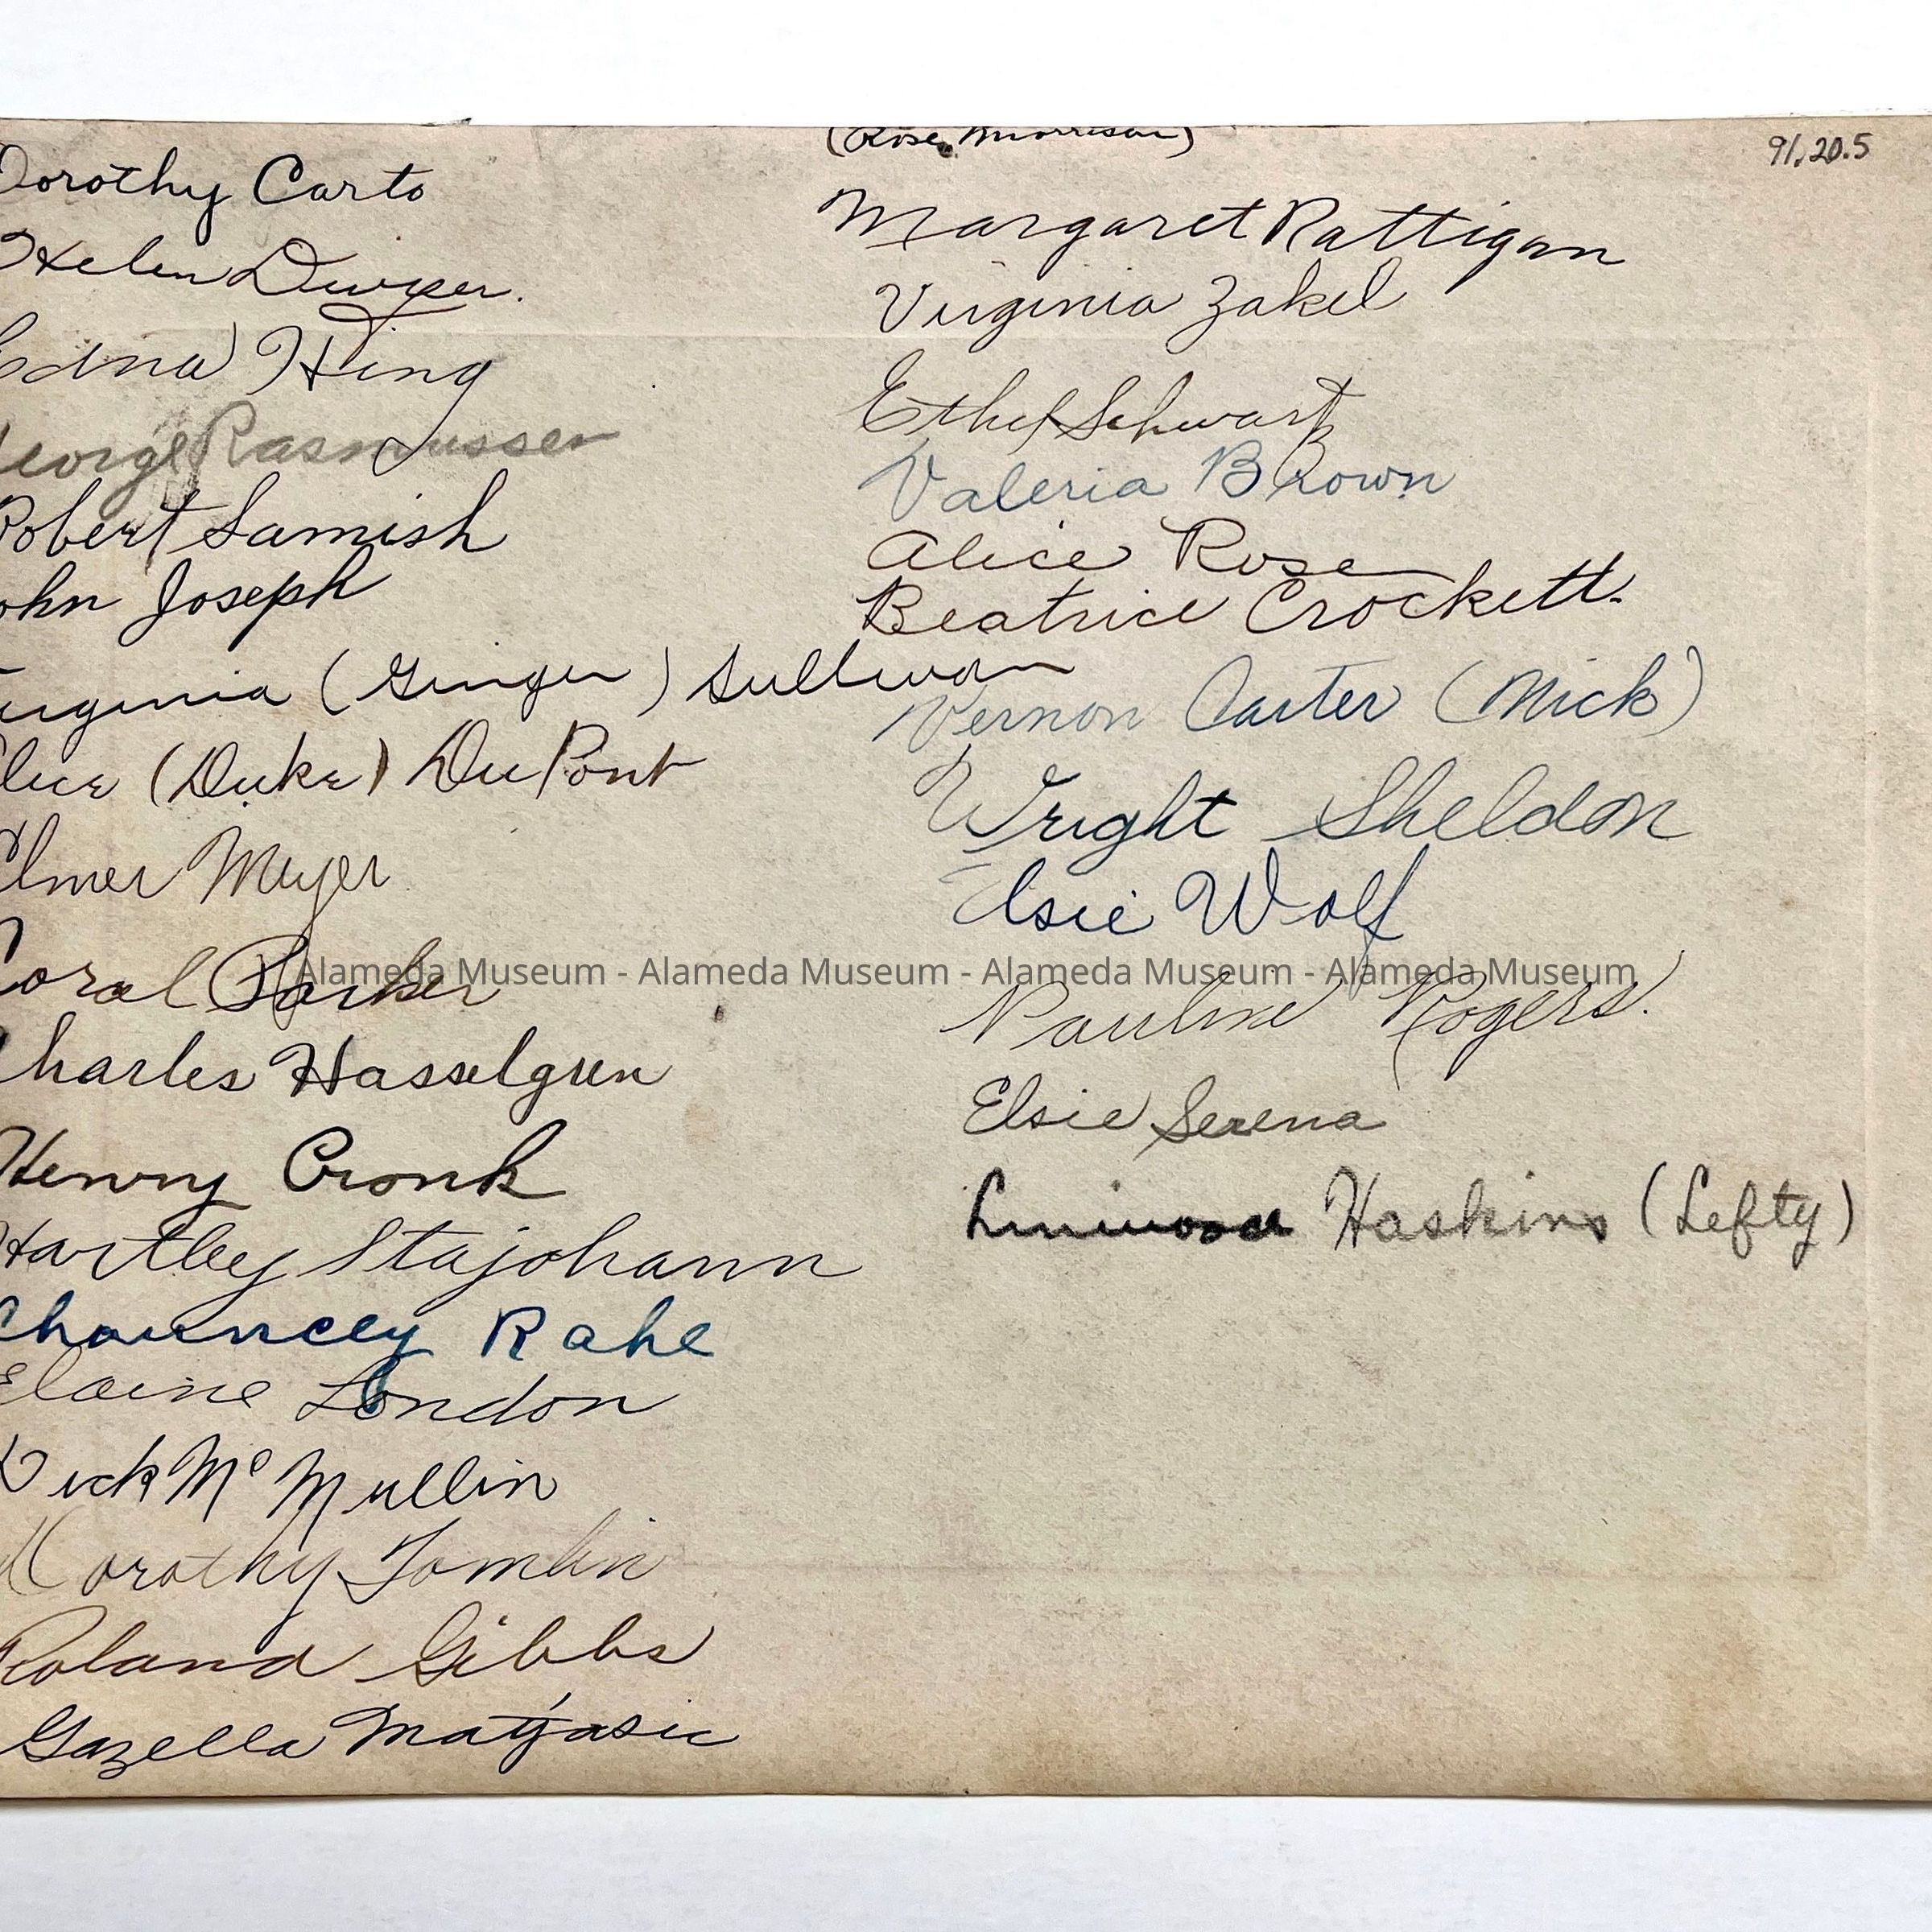 Dorothy Carto
Helen Dwyer.
Edna Hing
George Rasmussen
Robert Samish
John Joseph
Virginia (Ginger) Sullivan
Alice (Duke) DuPont
Elmer Meyer
Coral Parker
Charles Hasselgren
Henry Cronk
Hartley Stajohann
Chauncey Rahe
Elaine London
Dick McMullin
Dorothy Tomlin
Roland Gibbs
Gazella Matjasic
(Rose Morrison)
Margaret Rattigan
Virginia Zakel
Ethel Schwartz
Valeria Brown
Alice Rose
Beatrice Crockett.
Vernon Carter (Nick)
Wright Sheldon
Elsie Wolf
Pauline Rogers.
Elsie Serena
Haskins (Lefty)
91.20.5
Alameda Museum - Alameda Museum - Alameda Museum - Alameda Museum